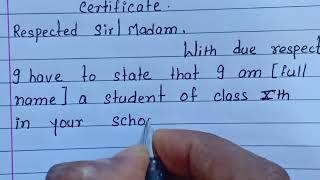 Certificate.
Respected Sir/ Madam.
With due respect
I have to state that I am [full
name] a student of class Xth
in your scho